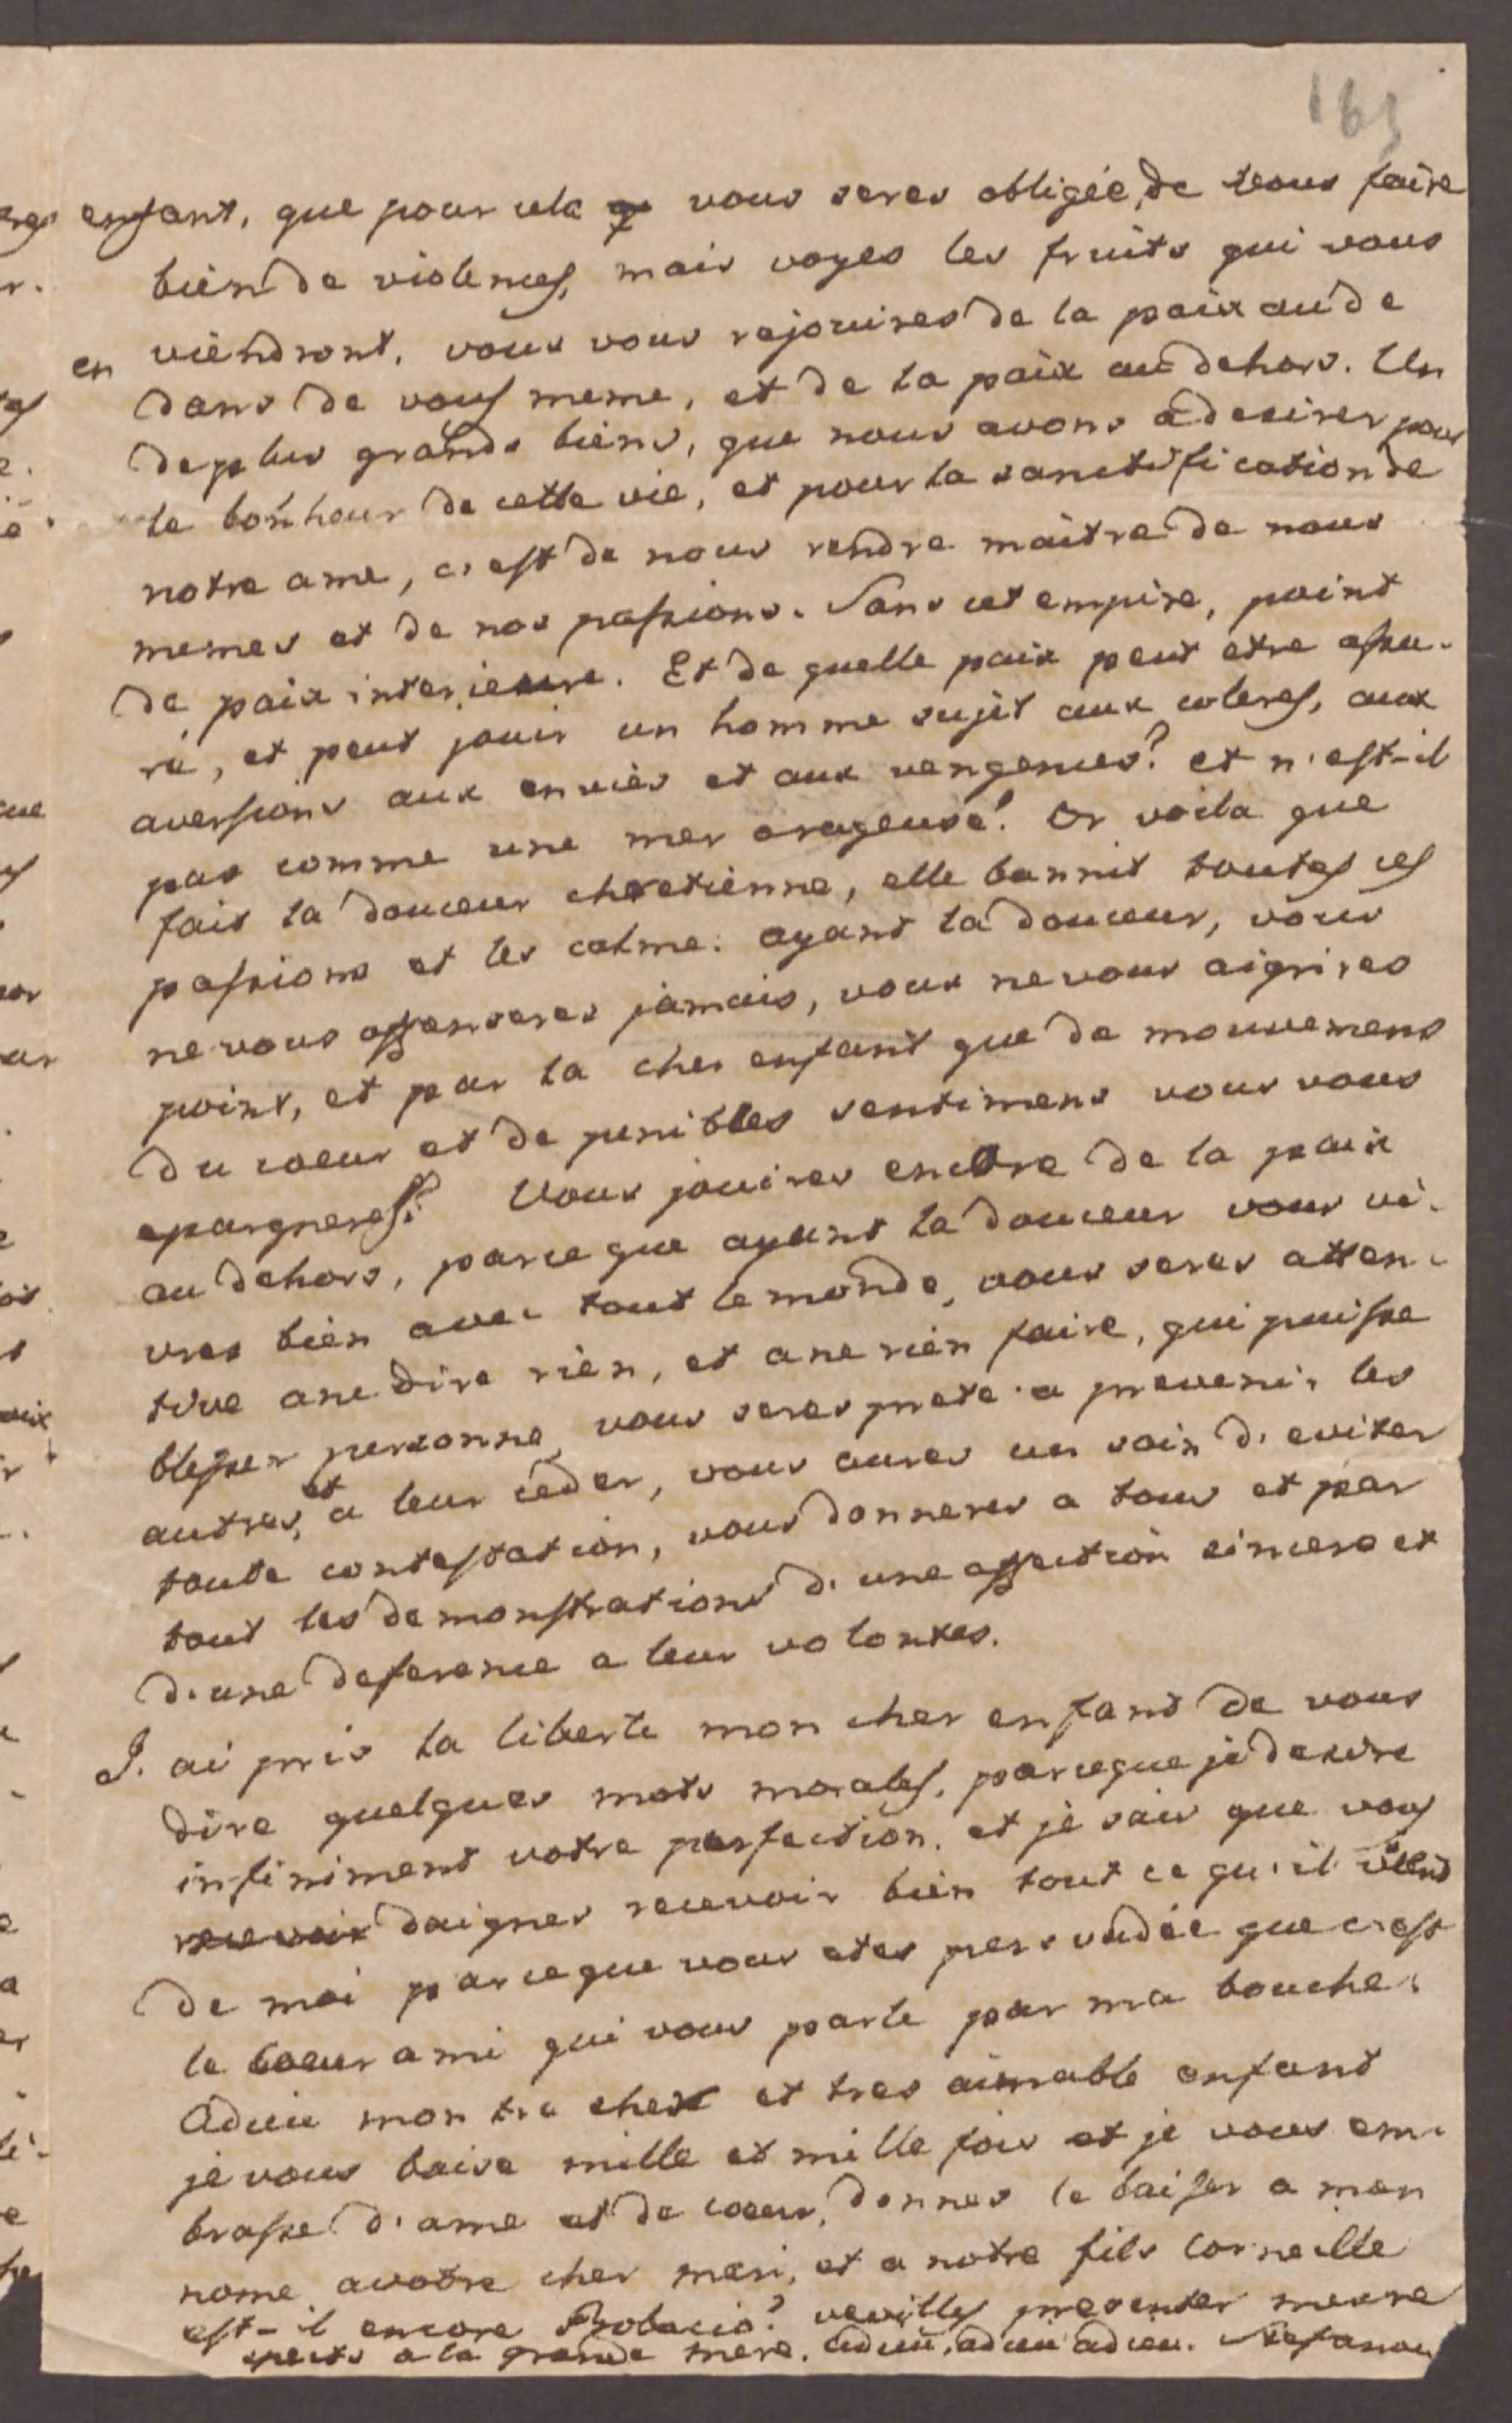 165
enfant, que pour cela vous seres obligée de vous faire
bien de violences, mais voyes les fruits qui vous
en viendront. vous vous rejouires de la paix au de
dans de vous meme, et de la paix au dehors. Un
de plus grands biens, que nous avons a desirer pour
le bonheur de cette vie, et pour la sanctification de
notre ame, c'est de nous rendre maitre de nous
memes et de nos passions. Sans cet empire, point
de paix interieure. Et de quelle paix peut etre assu-
ré, et peut jouir un homme sujèt aux coleres, aux
aversions aux envies et aux vengences? et n'est-il
pas comme une mer orageuse? Or voila que
fait la douceur chretienne, elle bannit toutes ces
passions et les calme. ayant la douceur, vous
ne vous offenseres jamais, vous ne vous aigrires
point, et par la cher enfant que de mouvemens
du coeur et de penibles sentimens vous vous
epargneres? Vous jouires encore de la paix
au dehors, parce que ayant la douceur vous vi-
vres bien avec tout le monde, vous seres atten-
tive a ne dire rien, et a ne rien faire, qui puisse
blesser personne, vous seres prete a prevenir les
autres, et a leur ceder, vous aures un soin d'eviter
toute contestation, vous donneres a tous et par
tout les demonstrations d'une affection sincere et
d'une deference a leur volontes.
J'ai pris la liberte mon cher enfant de vous
dire quelques mots morales, parceque je desire
infiniment votre perfection. et je sais que vous
recevoir daignes recevoir bien tout ce qu'il vient
de moi parceque vous etes persuadée que c'est
le coeur ami qui vous parle par ma bouche.
Adieu mon tre cher et tres aimable enfant
je vous baise mille et mille fois et je vous em-
brasse d'ame et de coeur, donnes le baiser a mon
nome a votre cher mari, et a notre fils Corneille
est-il encore ? veuilles presenter mes re
spects a la grande mere. Adieu, adieu adieu.